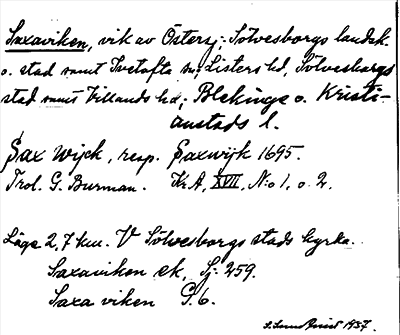 Saxaviken, vik av Östersj.; Sölvesborgs landsk.
o. stad samt Ivetofta sn Listers hd, Sölvesborgs
stad samt Villands hd; Blekinge o. Kristi-
anstads l.
Sax Wijck, resp. Saxwijk 1695.
Trol. G. Burman. Kr.A, XVII, N:o 1, o. 2.
Läge 2,7 km. V Sölvesborgs stads kyrka.
Saxaviken ek, Sj. 259.
Saxa viken G. b.
1937.